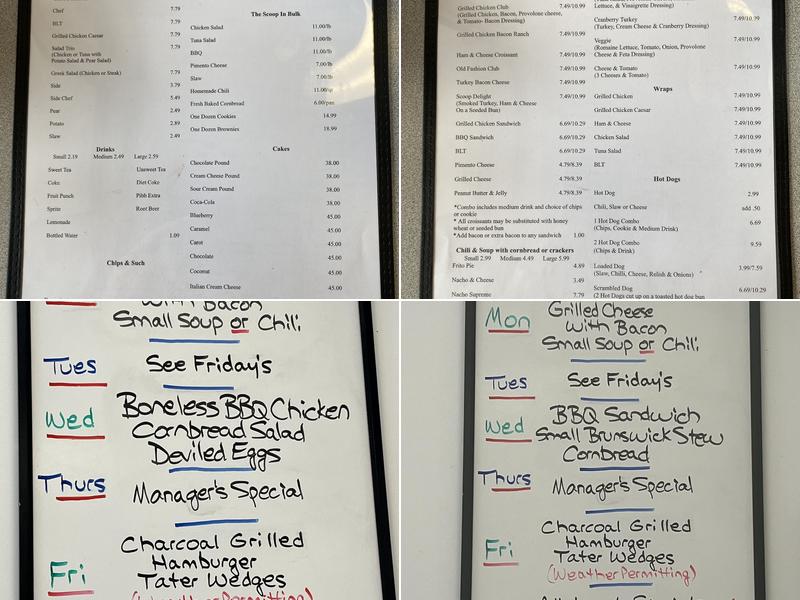 Chef 7.79
BLT 7.79
Grilled Chicken Caesar 7.79
Salad Trio 7.79
(Chicken or Tuna with
Potato Salad & Pear Salad)
Greek Salad (Chicken or Steak) 7.79
Side 3.79
Side Chef 5.49
Pear 2.49
Potato 2.89
Slaw 2.49
Drinks
Small 2.19 Medium 2.49 Large 2.59
Sweet Tea Unsweet Tea
Coke Diet Coke
Fruit Punch Pibb Extra
Sprite Root Beer
Lemonade
Bottled Water 1.09
Chips & Such
The Scoop In Bulk
Chicken Salad 11.00/lb
Tuna Salad 11.00/lb
BBQ 11.00/lb
Pimento Cheese 7.00/lb
Slaw 7.00/lb
Homemade Chili 11.00/qt
Fresh Baked Cornbread 6.00/pan
One Dozen Cookies 14.99
One Dozen Brownies 18.99
Cakes
Chocolate Pound 38.00
Cream Cheese Pound 38.00
Sour Cream Pound 38.00
Coca-Cola 38.00
Blueberry 45.00
Caramel 45.00
Carot 45.00
Chocolate 45.00
Coconut 45.00
Italian Cream Cheese 45.00
Grilled Chicken Club 7.49/10.99
(Grilled Chicken, Bacon, Provolone cheese,
& Tomato- Bacon Dressing)
Grilled Chicken Bacon Ranch 7.49/10.99
Ham & Cheese Croissant 7.49/10.99
Old Fashion Club 7.49/10.99
Turkey Bacon Cheese 7.49/10.99
Scoop Delight 7.49/10.99
(Smoked Turkey, Ham & Cheese
On a Seeded Bun)
Grilled Chicken Sandwich 6.69/10.29
BBQ Sandwich 6.69/10.29
BLT 6.69/10.29
Pimento Cheese 4.79/8.39
Grilled Cheese 4.79/8.39
Peanut Butter & Jelly 4.79/8.39
*Combo includes medium drink and choice of chips
or cookie
* All croissants may be substituted with honey
wheat or seeded bun
*Add bacon or extra bacon to any sandwich 1.00
Chili & Soup with cornbread or crackers
Small 2.99 Medium 4.49 Large 5.99
Frito Pie 4.89
Nacho & Cheese 3.49
Nacho Supreme 7.79
Lettuce, & Vinaigrette Dressing)
Cranberry Turkey 7.49/10.99
(Turkey, Cream Cheese & Cranberry Dressing)
Veggie 7.49/10.99
(Romaine Lettuce, Tomato, Onion, Provolone
Cheese & Feta Dressing)
Cheese & Tomato 7.49/10.99
(3 Cheeses & Tomato)
Wraps
Grilled Chicken 7.49/10.99
Grilled Chicken Caesar 7.49/10.99
Ham & Cheese 7.49/10.99
Chicken Salad 7.49/10.99
Tuna Salad 7.49/10.99
BLT 7.49/10.99
Hot Dogs
Hot Dog 2.99
Chili, Slaw or Cheese add .50
1 Hot Dog Combo 6.69
(Chips, Cookie & Medium Drink)
2 Hot Dog Combo 9.59
(Chips & Drink)
Loaded Dog 3.99/7.59
(Slaw, Chilli, Cheese, Relish & Onions)
Scrambled Dog 6.69/10.29
(2 Hot Dogs cut up on a toasted hot dog bun
With Bacon
Small Soup or Chili
Tues See Friday's
Wed Boneless BBQ Chicken
Cornbread Salad
Deviled Eggs
Thurs Manager's Special
Charcoal Grilled
Hamburger
Fri Tater Wedges
(Weather Permitting)
Mon Grilled Cheese
With Bacon
Small Soup or Chili
Tues See Friday's
Wed BBQ Sandwich
Small Brunswick Stew
Cornbread
Thurs Manager's Special
Charcoal Grilled
Fri Hamburger
Tater Wedges
(Weather Permitting)